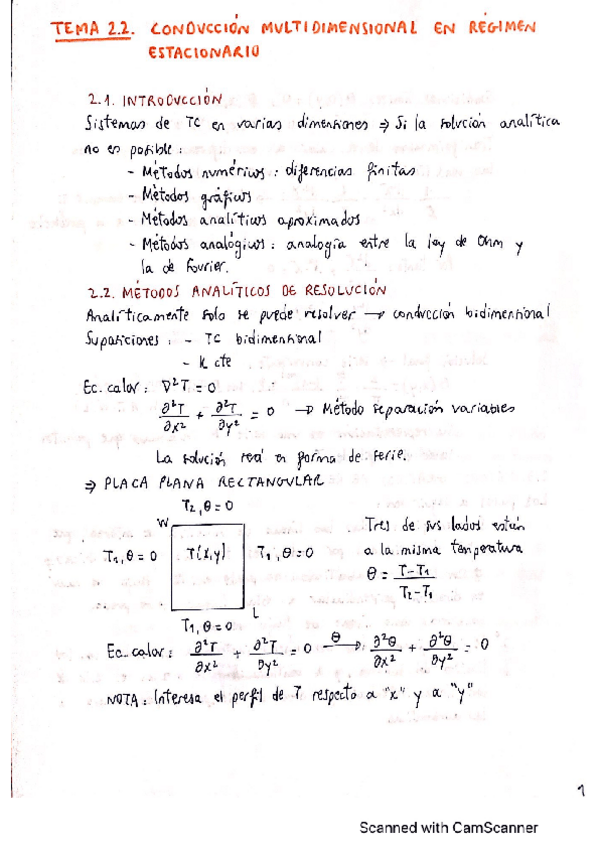 TEMA 2.2. CONDUCCIÓN MULTIDIMENSIONAL EN RÉGIMEN
ESTACIONARIO
2.1. INTRODUCCIÓN
Sistemas de TC en varias dimensiones ⇒ Si la solución analítica
no es posible:
- Métodos numéricos: diferencias finitas
- Métodos gráficos
- Métodos analíticos aproximados
- Métodos analógicos: analogía entre la ley de Ohm y
la de Fourier.
2.2. MÉTODOS ANALÍTICOS DE RESOLUCIÓN
Analíticamente solo se puede resolver → conducción bidimensional
Suposiciones: - TC bidimensional
- K cte
Ec. calor: ∇²T = 0
∂²T/∂x² + ∂²T/∂y² = 0 → Método separación variables
La solución será en forma de serie.
⇒ PLACA PLANA RECTANGULAR
T₂, θ = 0
W
T₁, θ = 0
T(x,y)
T₁, θ = 0
L
T₁, θ = 0
Tres de sus lados están
a la misma temperatura
θ = T-T₁/T₂-T₁
Ec. calor: ∂²T/∂x² + ∂²T/∂y² = 0 →θ ∂²θ/∂x² + ∂²θ/∂y² = 0
NOTA: Interesa el perfil de T respecto a "x" y a "y"
1
Scanned with CamScanner